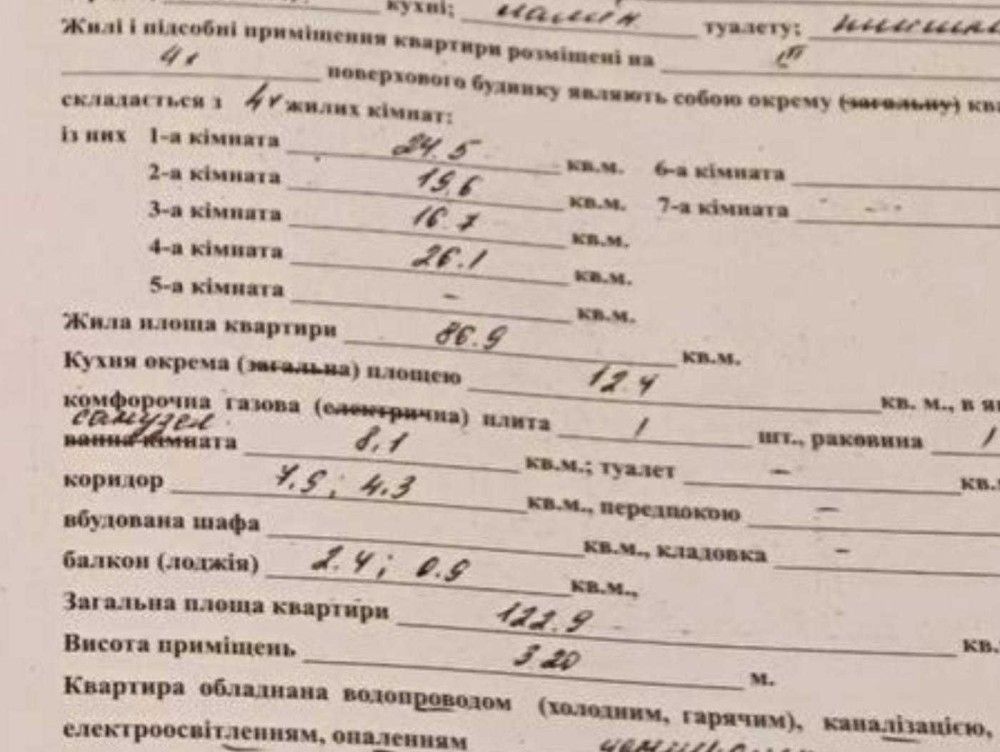 кухні; ламін туалету;
Жилі і підсобні приміщення квартири розміщені на III
4х поверхового будинку являють собою окрему (загальну) ква
складається з 4х жилих кімнат:
із них 1-а кімната 24.5 кв.м. 6-а кімната
2-а кімната 19.6 кв.м. 7-а кімната -
3-а кімната 16.7 кв.м.
4-а кімната 26.1 кв.м.
5-а кімната - кв.м.
Жила площа квартири 86.9 кв.м.
Кухня окрема (загальна) площею 12.4 кв. м., в як
комфорочна газова (електрична) плита 1 шт., раковина 1
санузел
ванна кімната 8,1 кв.м.; туалет - кв.
коридор 7.9; 4.3 кв.м., передпокою -
вбудована шафа кв.м., кладовка -
балкон (лоджія) 2.4; 0.9 кв.м.,
Загальна площа квартири 122.9 кв.
Висота приміщень 3 20 м.
Квартира обладнана водопроводом (холодним, гарячим), каналізацією,
електроосвітленням, опаленням